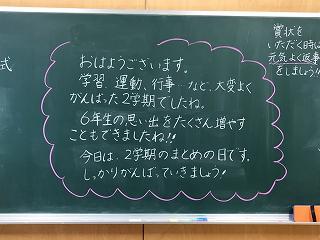 式
おはようございます。
学習、運動、行事…など、大変よく
がんばった2学期でしたね。
6年生の思い出をたくさん増やす
こともできましたね!!
今日は、2学期のまとめの日です。
しっかりがんばっていきましょう!
賞状を
いただく時は
元気よく返事
をしましょう!!